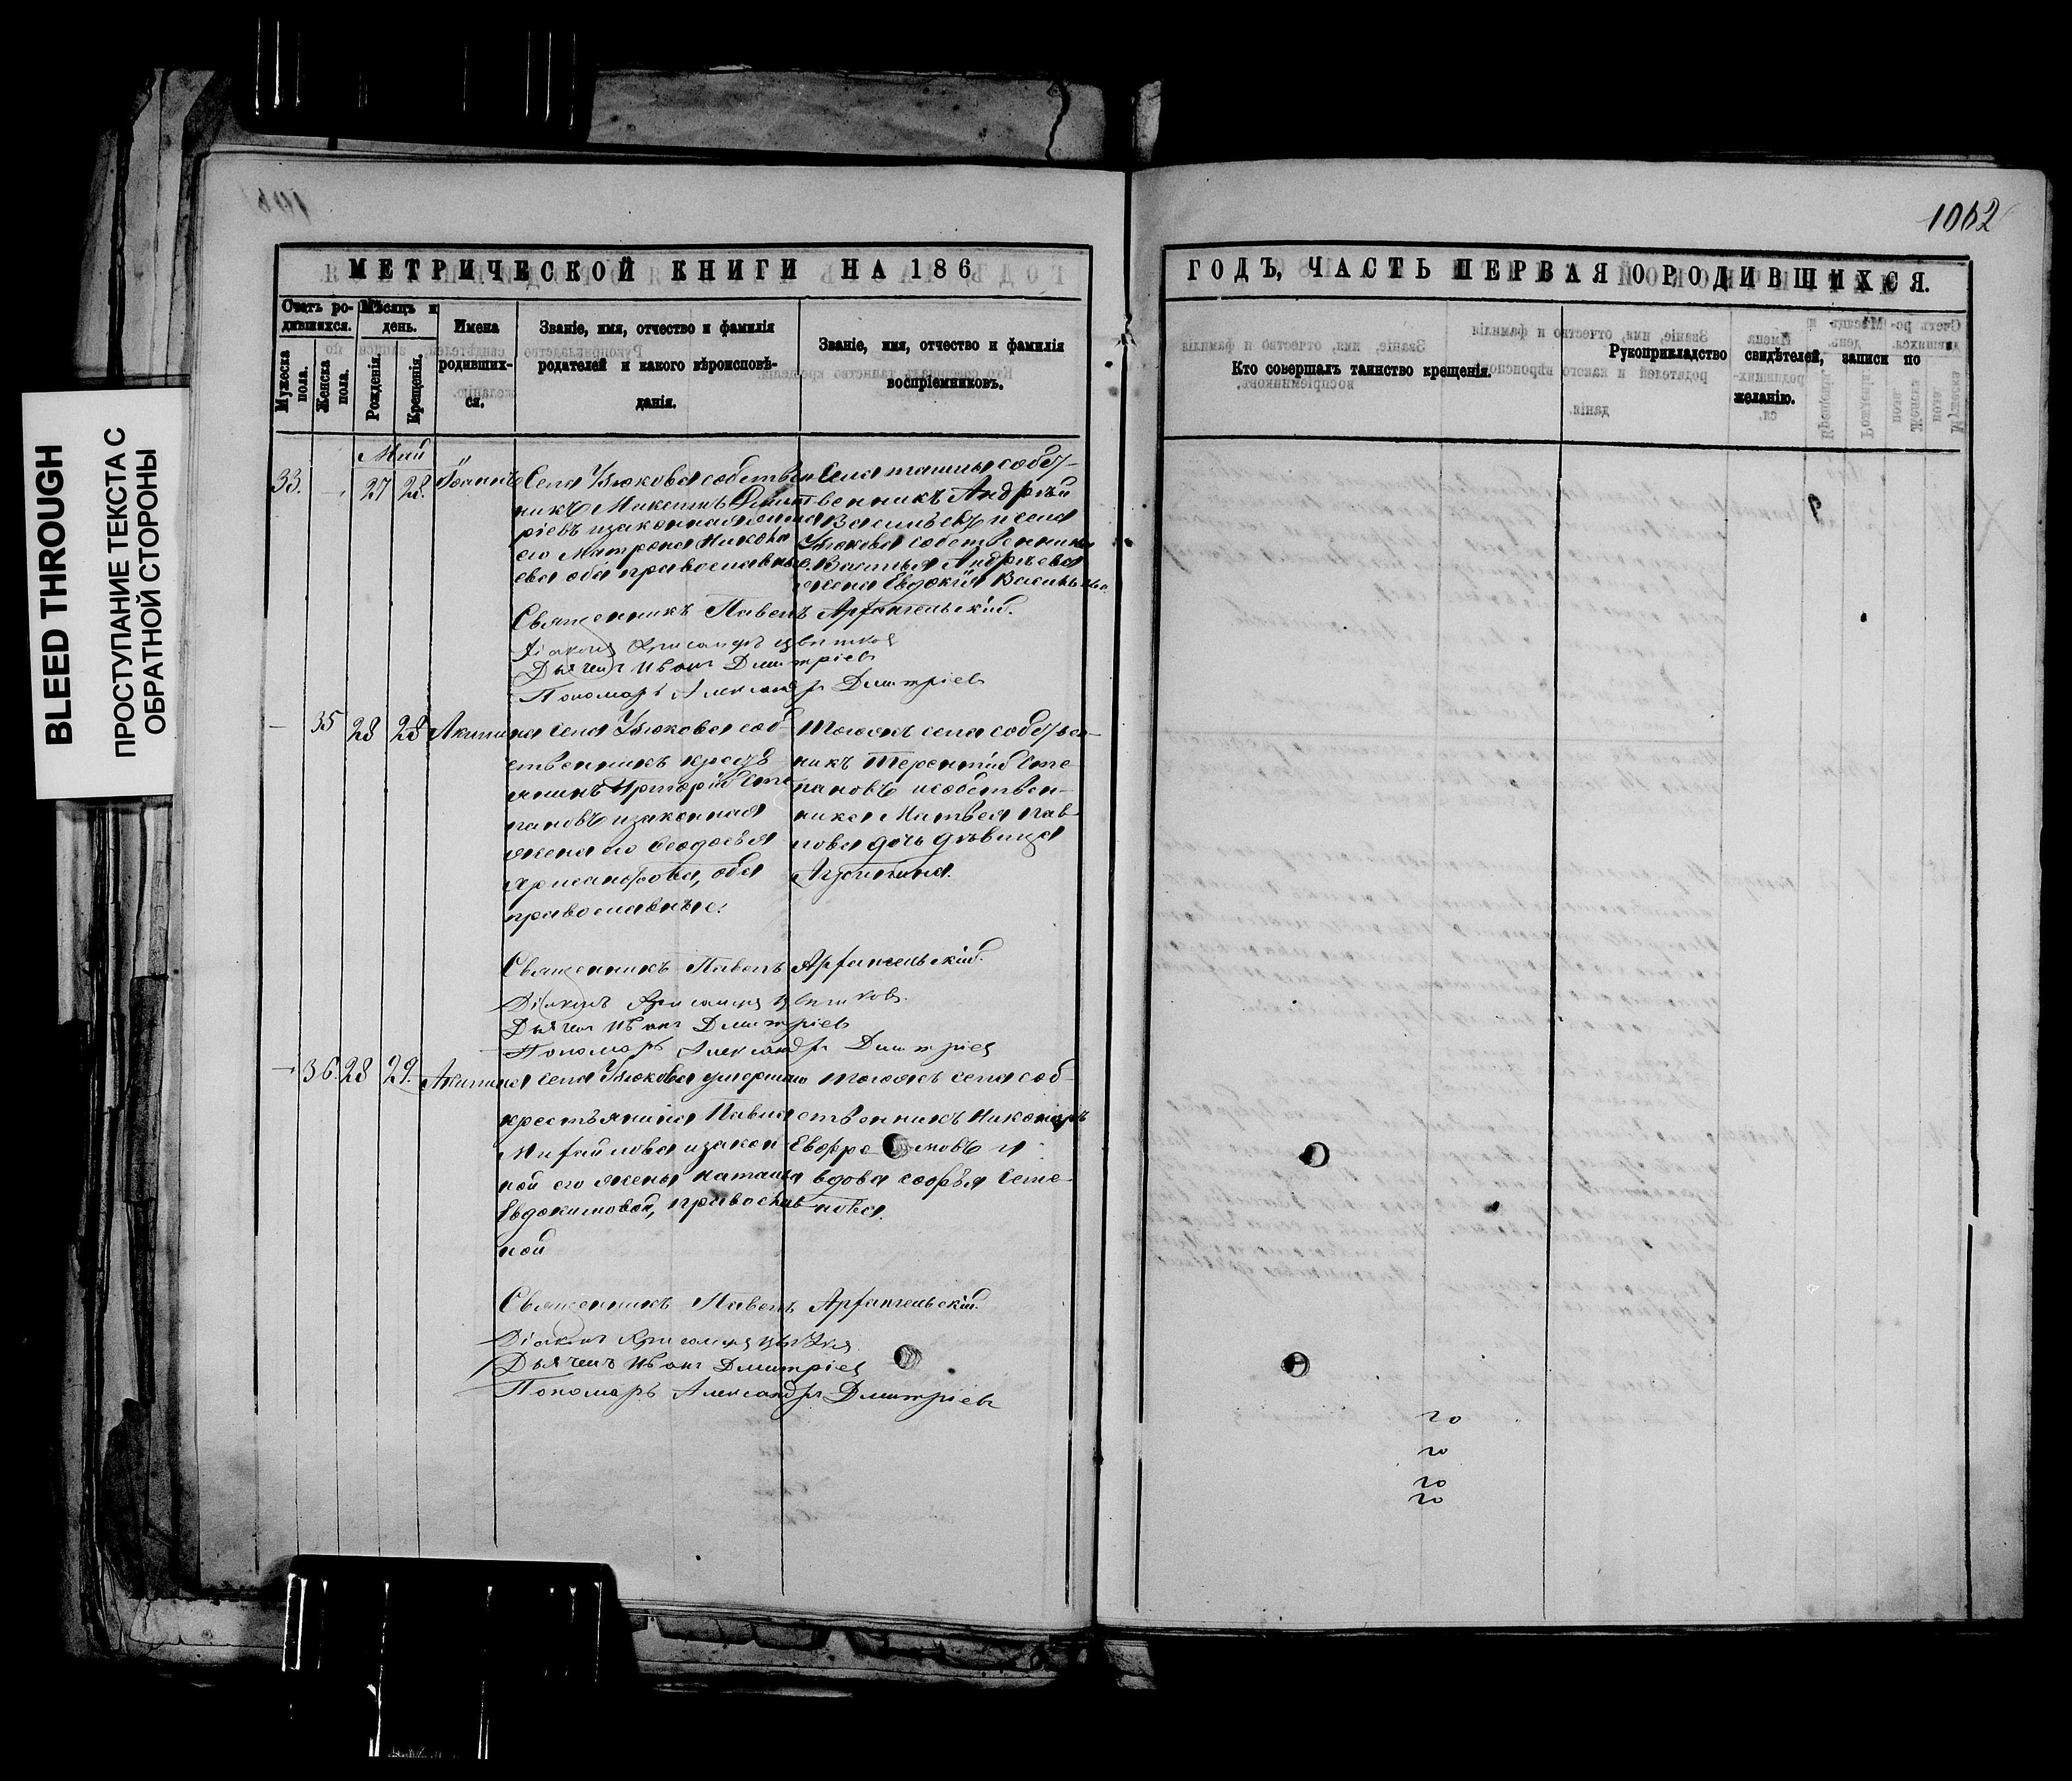 BLEED THROUGH
ПРОСТУПАНИЕ ТЕКСТА С
ОБРАТНОЙ СТОРОНЫ
1062
МЕТРИЧЕСКОЙ КНИГИ НА 186
Счетъ ро-
дившихся.
Мужеска
пола.
Женска
пола.
Мѣсяцъ и
день.
Рожденія.
Крещенія.
Имена
родивших-
ся.
Званіе, имя, отчество и фамилія
родителей и какого вѣроисповѣ-
данія.
Званіе, имя, отчество и фамилія
воспріемниковъ.
ГОДЪ, ЧАСТЬ ПЕРВАЯ О РОДИВШИХСЯ.
Кто совершалъ таинство крещенія.
Рукоприкладство свидѣтелей, записи по
желанію.
Май
33. 27 28. Іоаннъ
Села Узюкова собствен
никъ Дмит
ріевъ и законная жена
его Матрона Никола
ева оба православные.
Села Ташлы собст-
венникъ Андрей
Васильевъ и села
Узюкова собственника
Андреева
жена Евдокія Васильева.
Священникъ Павелъ Архангельскій.
Діаконъ Хрисанфъ Цвѣтков
Дьячекъ Иванъ Дмитріев
Пономарь Александръ Дмитріев
35 28 28 Акилина
Села Узюкова соб-
ственникъ кресть
янинъ Григорій Сте
пановъ и законная
жена его Феодосья
Хрисанфова, оба
православные.
Тогожъ села собствен-
никъ Терентій Сте
пановъ и собствен-
ника Матвея Пав
лова дочь дѣвица
Агрипина.
Священникъ Павелъ Архангельскій.
Діаконъ Хрисанфъ Цвѣтковъ.
Дьячекъ Иванъ Дмитріев
Пономарь Александръ Дмитріев
36 28 29. Акилина
Села Узюкова умершаго
крестьянина Павла
Михайлова и закон
ной его жены Наталіи
Евдокимовой, православ
ной
Тогожъ села соб-
ственникъ Никаноръ
и
вдова Софья Сте-
пова.
Священникъ Павелъ Архангельскій.
Діаконъ Хрисанфъ
Дьячекъ Иванъ Дмитріев
Пономарь Александръ Дмитріев
го
го
го
го